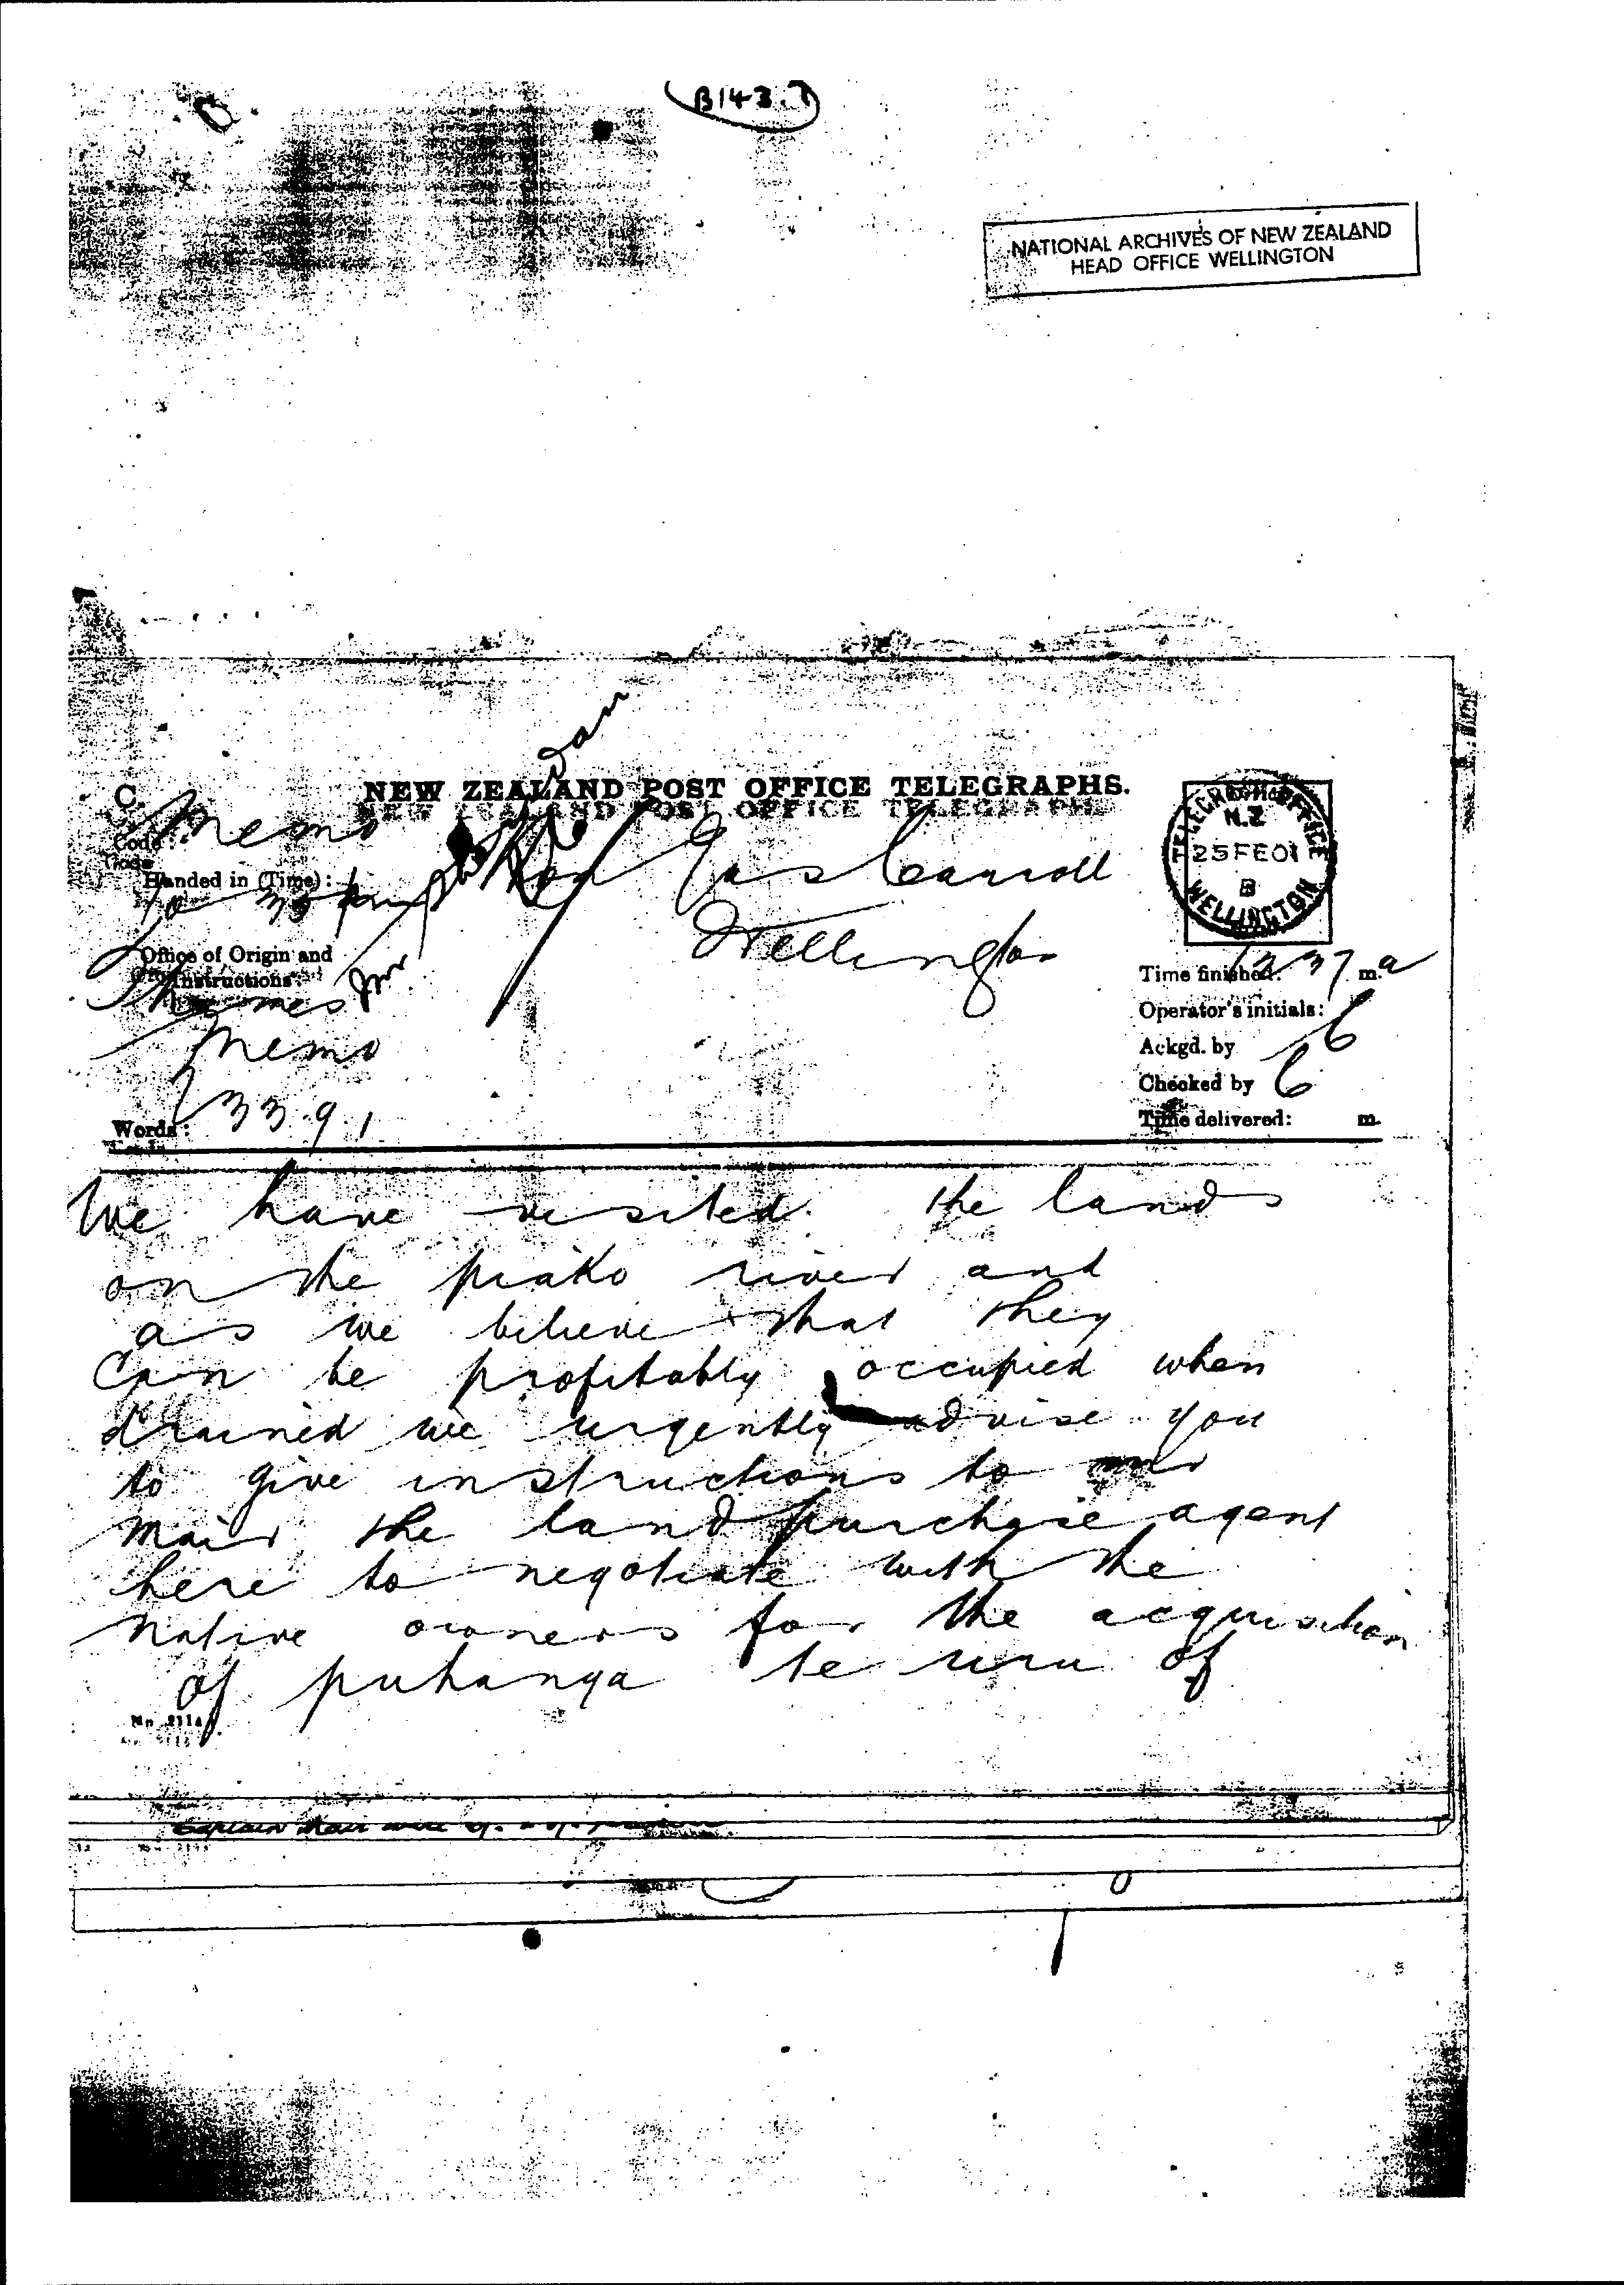 B143.
NATIONAL ARCHIVES OF NEW ZEALAND
HEAD OFFICE WELLINGTON
NEW ZEALAND POST OFFICE TELEGRAPHS.
C.
Memo
Code
Handed in (Time):
Hon Jas Carroll
Wellington
TELEGRAPH OFFICE
N.Z
25 FE 01
B
WELLINGTON
Office of Origin and
Instructions:
Thames
Memo
Time finished: 37 m. a
Operator's initials:
Ackgd. by
Checked by
Time delivered: m.
Words: 339.1
We have visited the lands
on the piako river and
as we believe that they
can be profitably occupied when
drained we urgently advise you
to give instructions to
mair the land purchase agent
here to negotiate with the
native owners for the acquisition
of puhanga te uru of
Captain Mair